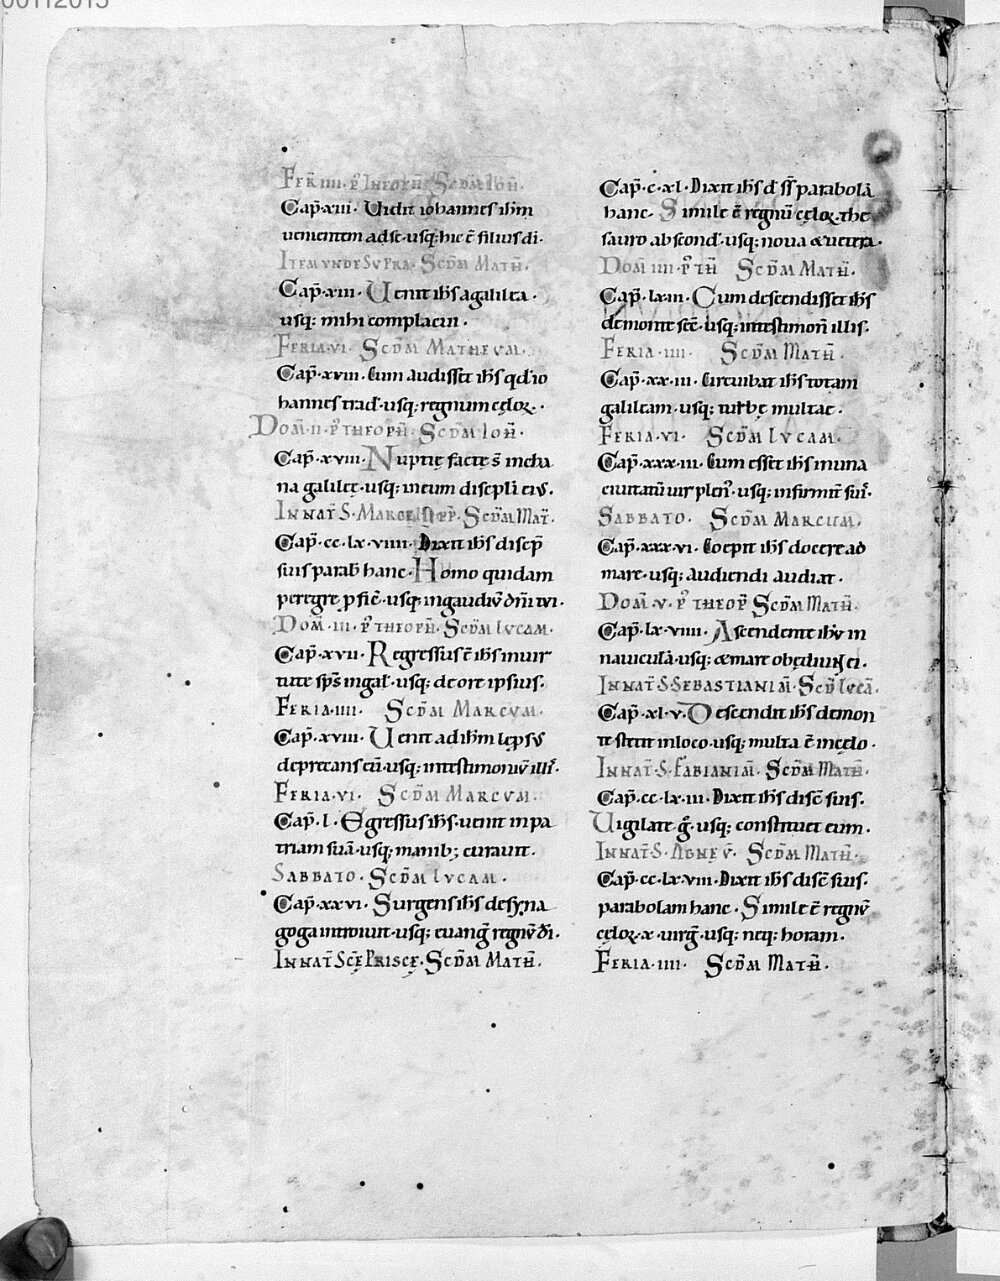 00112015
FER̄ IIII· P̄ THEOPH̄· SCD̄M IOH̄·
Cap̄·xiii· Uidit iohannes ih̄m
uenientem adse·usq; hic ē filius di·
ITEM VNDE SVPRA· SCD̄M MATH̄·
Cap̄·xiii· Uenit ih̄s a galilea·
usq; mihi complacui·
FERIA·VI· SCD̄M MATHEVM·
Cap̄·xviii· Cum audisset ih̄s qđ io
hannes trad̄·usq; regnum cęloꝝ·
DOM̄·II·P̄ THEOPH̄· SCD̄M IOH̄·
Cap̄·xviii· Nuptię factę s̄ incha
na galileę·usq; in eum discipli eiꝰ·
IN NAT̄ S· MARCELLI P̄P̄· SCD̄M MAT̄·
Cap̄·cc·lx·viiii· Dixit ih̄s discip̄
suis parab̄ hanc· Homo quidam
peregre p̄ficē·usq; in gaudiū dn̄i tui·
DOM̄·III· P̄ THEOPH̄· SCD̄M LVCAM·
Cap̄·xvii· Regressus ē ih̄s in uir
tute sp̄s in gal̄·usq; de ore ipsius·
FERIA·IIII· SCD̄M MARCVM·
Cap̄·xviii· Uenit ad ih̄m lepsꝰ
deprecans eū·usq; in testimoniū illiꝰ·
FERIA·VI· SCD̄M MARCVM·
Cap̄·l· Egressus ih̄s·uenit in pa
triam suā·usq; manib; curauit·
SABBATO· SCD̄M LVCAM·
Cap̄·xxvi· Surgens ih̄s de syna
goga introiuit·usq; euanḡ regnū đi·
IN NAT̄ SCĘ PRISCĘ· SCD̄M MATH̄·
Cap̄·c·xl· Dixit ih̄s d̄ s̄s̄ parabolā
hanc· Simile ē regnū cęloꝝ·the
sauro abscond̄·usq; noua & uetera·
DOM̄ IIII·P̄ TH̄ SCD̄M MATH̄·
Cap̄·lxiii· Cum descendisset ih̄s
de monte secē·usq; in testimon̄ illis·
FERIA·IIII· SCD̄M MATH̄·
Cap̄·xx·iii· Circuibat ih̄s totam
galileam·usq; turbę multae·
FERIA·VI· SCD̄M LVCAM·
Cap̄·xxx·iii· Cum esset ih̄s in una
ciuitatū uir plenꝰ·usq; infirmit̄ suiꝰ·
SABBATO· SCD̄M MARCUM·
Cap̄·xxx·vi· Coepit ih̄s docere ad
mare·usq; audiendi audiat·
DOM̄·V·P̄ THEOP̄ SCD̄M MATH̄·
Cap̄·lx·viiii· Ascendente ih̄u in
nauiculā·usq; & mare obędiunt ei·
IN NAT̄ S· SEBASTIANI M̄· SCD̄ LVCĀ·
Cap̄·xl·v· Descendit ih̄s de mon
te stetit in loco·usq; multa ē in cęlo·
IN NAT̄·S·FABIANI M̄· SCD̄M MATH̄·
Cap̄·cc·lx·iii· Dixit ih̄s discē suis·
Uigilate ḡ·usq; constituet eum·
IN NAT̄·S·AGNE V̄· SCD̄M MATH̄·
Cap̄·cc·lx·viii· Dixit ih̄s discē suis·
parabolam hanc· Simile ē regnū
cęloꝝ·x·uirḡ·usq; neq; horam·
FERIA·IIII· SCD̄M MATH̄·